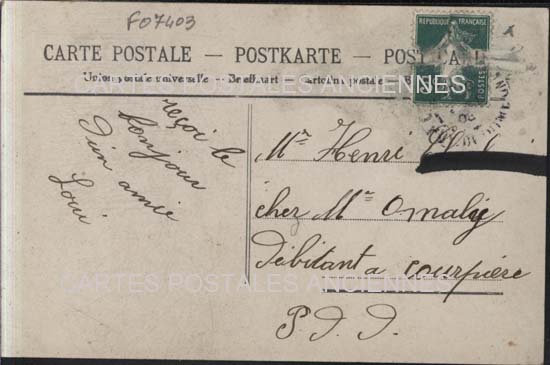 F07403
CARTE POSTALE — POSTKARTE — POST CARD
Union postale universelle — Briefkaart — Cartolina postale
REPUBLIQUE FRANÇAISE
POSTES
CARTES POSTALES ANCIENNES
reçoi le
bonjour
d'un amie
Loui
Mr Henri
chez Mr Omaly
Débitant a Courpière
P. D. D.
CARTES POSTALES ANCIENNES